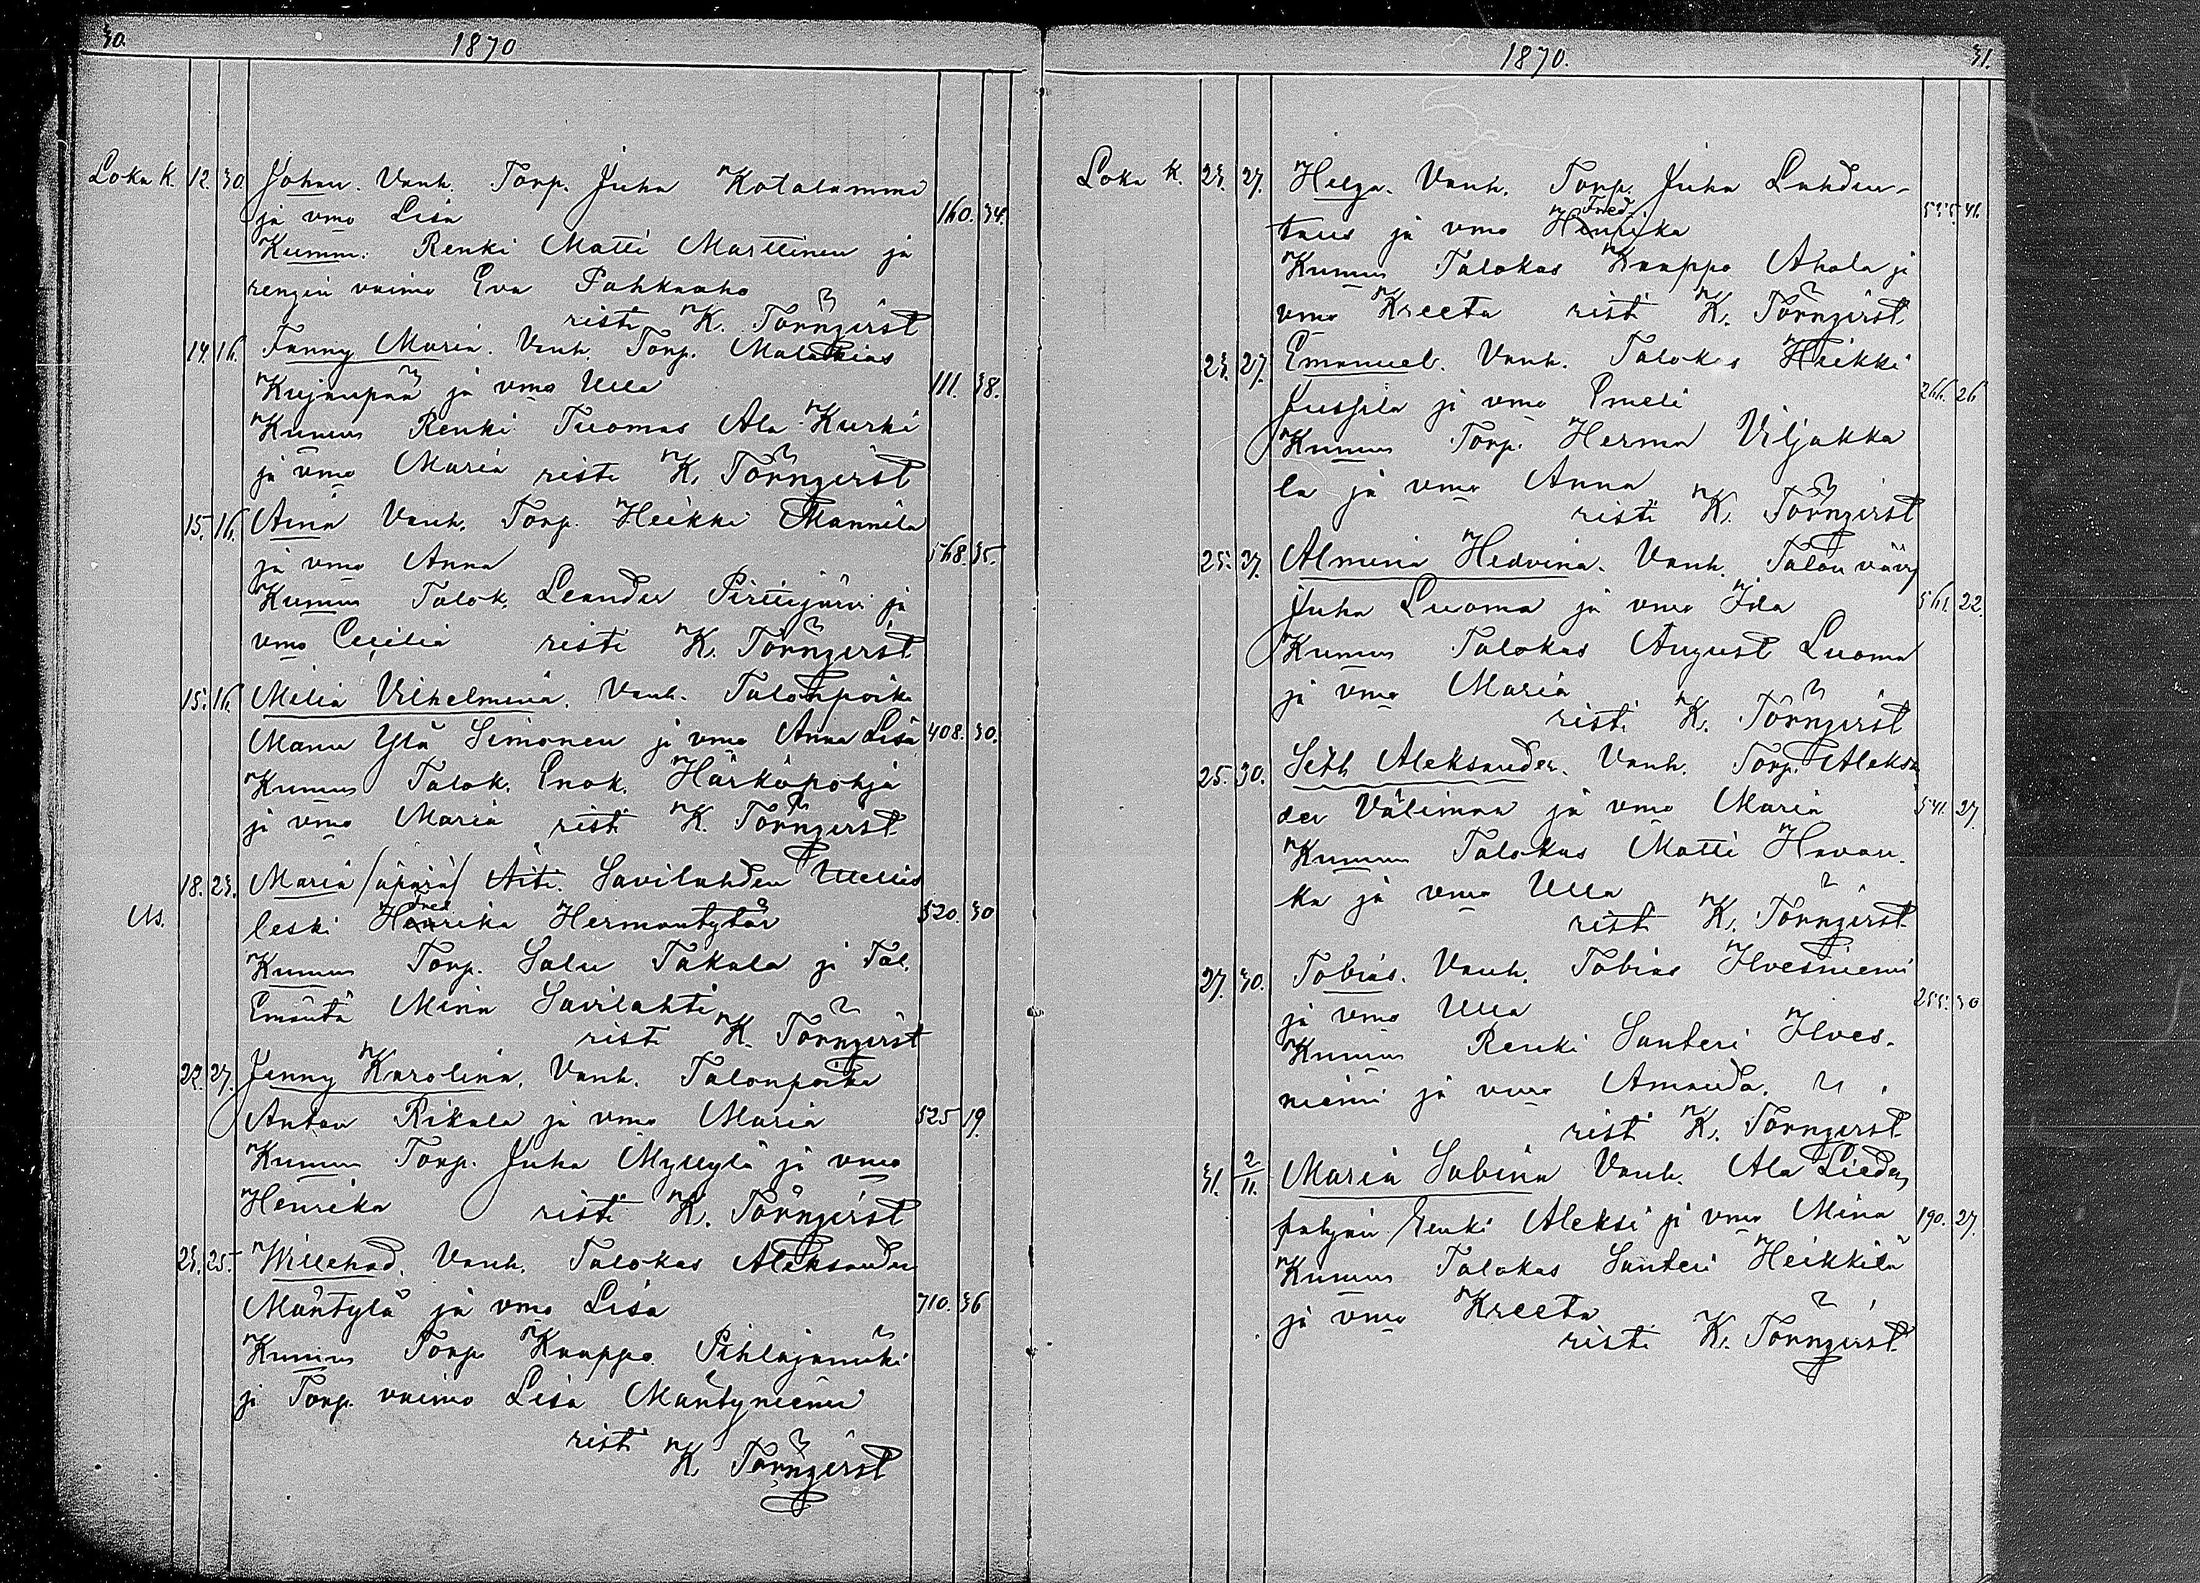 30.
1870
Loka K. 12. 30. Johan. Vanh. Torp. Juha Kotalammi
ja vmo Lisa 160. 34.
Kumm. Renki Matti Marttinen ja
rengin vaimo Eva Pahkaaho
risti K. Törnqvist
14. 16. Fanny Maria. Vanh. Torp. Malakias
Kujanpää ja vmo Ulla 111. 38.
Kumm Renki Tuomas Ala Kurki
ja vmo Maria risti K. Törnqvist
15. 16. Aina Vanh. Torp. Heikki Mannila
ja vmo Anna 568. 35.
Kumm Talok. Leander Piritijärvi ja
vmo Cecilia risti K. Törnqvist
15. 16. Milia Vilhelmina. Vanh. Talonpoika
Manu Ylä Simonen ja vmo Anna Lisa 408. 30.
Kumm Talok. Enok. Härköpohja
ja vmo Maria risti K. Törnqvist
18. 23. Maria /äpärä/ Äiti. Savilahden
leski Henrika Fred Hermantytär 520. 30
Kumm Torp. Salu Takala ja Tal.
Emäntä Mina Savilahti
risti K. Törnqvist
22. 27. Jenny Karolina. Vanh. Talonpoika
Anton Rikala ja vmo Maria 525 19.
Kumm Torp. Juha Myllylä ja vmo
Henrika risti K. Törnqvist
23. 25. Willehad. Vanh. Talokas Aleksander
Mäntylä ja vmo Lisa 710. 36
Kumm Torp Kaappo Pihlajamäki
ja Torp. vaimo Lisa Mäntyniemi
risti
K Törnqvist
1870.
31.
Loka K. 23. 27. Helga. Vanh. Torp. Juha Lahden-
taus ja vmo Henrika Fred 41.
Kumm Talokas Kaappo Ahola ja
vmo Kreeta risti K. Törnqvist
23. 27. Emanuel. Vanh. Talokas Heikki
Jussila ja vmo Emeli 266. 26
Kumm Torp. Herman Viljakka
la ja vmo Anna
risti K. Törnqvist
25. Almina Hedvina. Vanh. Talon vävy
Juha Luoma ja vmo Ida 561. 22.
Kumm Talokas August Luoma
ja vmo Maria
risti K. Törnqvist
25. 30. Seth Aleksander. Vanh. Torp. Aleksan
der Välimaa ja vmo Maria 541. 27.
Kumm Talokas Matti Havan-
ka ja vmo Ulla
risti K. Törnqvist
27. 30. Tobias. Vanh. Tobias Ilvesniemi
ja vmo Ulla 255. 30
Kumm Renki Santeri Ilves-
niemi ja vmo Amanda.
risti K. Törnqvist
31. 2/11. Maria Sabina Vanh. Ala Lieden
pohjan Renki Aleksi ja vmo Mina 190. 27.
Kumm Talokas Santeri Heikkilä
ja vmo Kreeta
risti K. Törnqvist